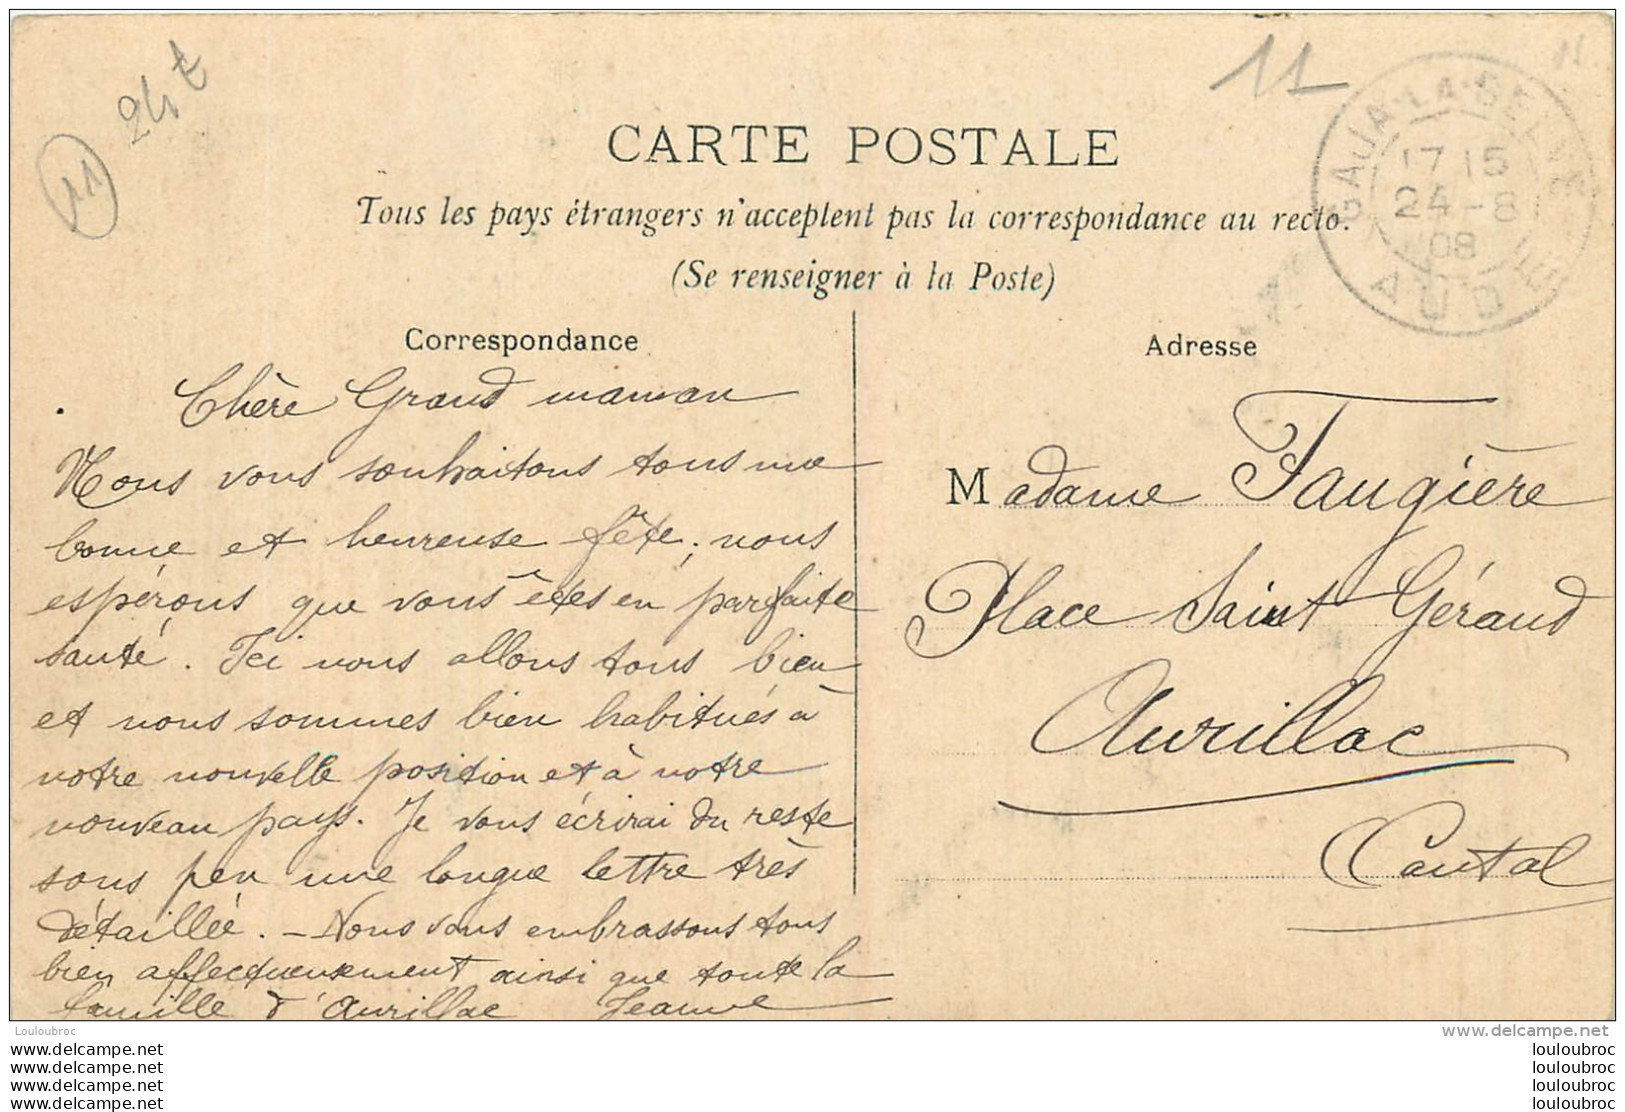 11
24t
11
CARTE POSTALE
Tous les pays étrangers n'acceptent pas la correspondance au recto.
(Se renseigner à la Poste)
GAJA-LA-SELVE
17 15
24-8
08
AUDE
Correspondance
Chère Grand maman
Nous vous souhaitons tous une
bonne et heureuse fête; nous
espérons que vous êtes en parfaite
santé. Ici nous allons tous bien
et nous sommes bien habitués à
notre nouvelle position et à notre
nouveau pays. Je vous écrirai du reste
sous peu une longue lettre très
détaillée. - Nous vous embrassons tous
bien affectueusement ainsi que toute la
famille d'Aurillac Jeanne
Adresse
Madame Faugière
Place Saint Géraud
Aurillac
Cantal
Louloubroc
www.delcampe.net
www.delcampe.net
www.delcampe.net
www.delcampe.net
www.delcampe.net
louloubroc
louloubroc
louloubroc
louloubroc